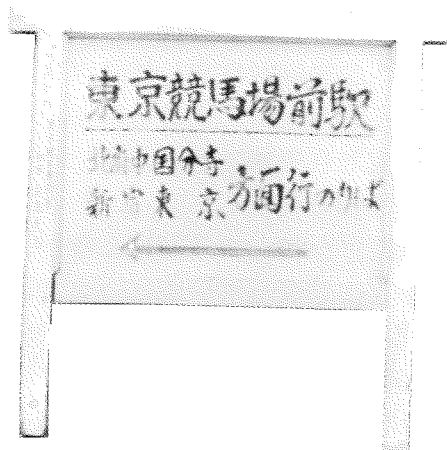 東京競馬場前駅
国分寺
新宿東京方面行のりば